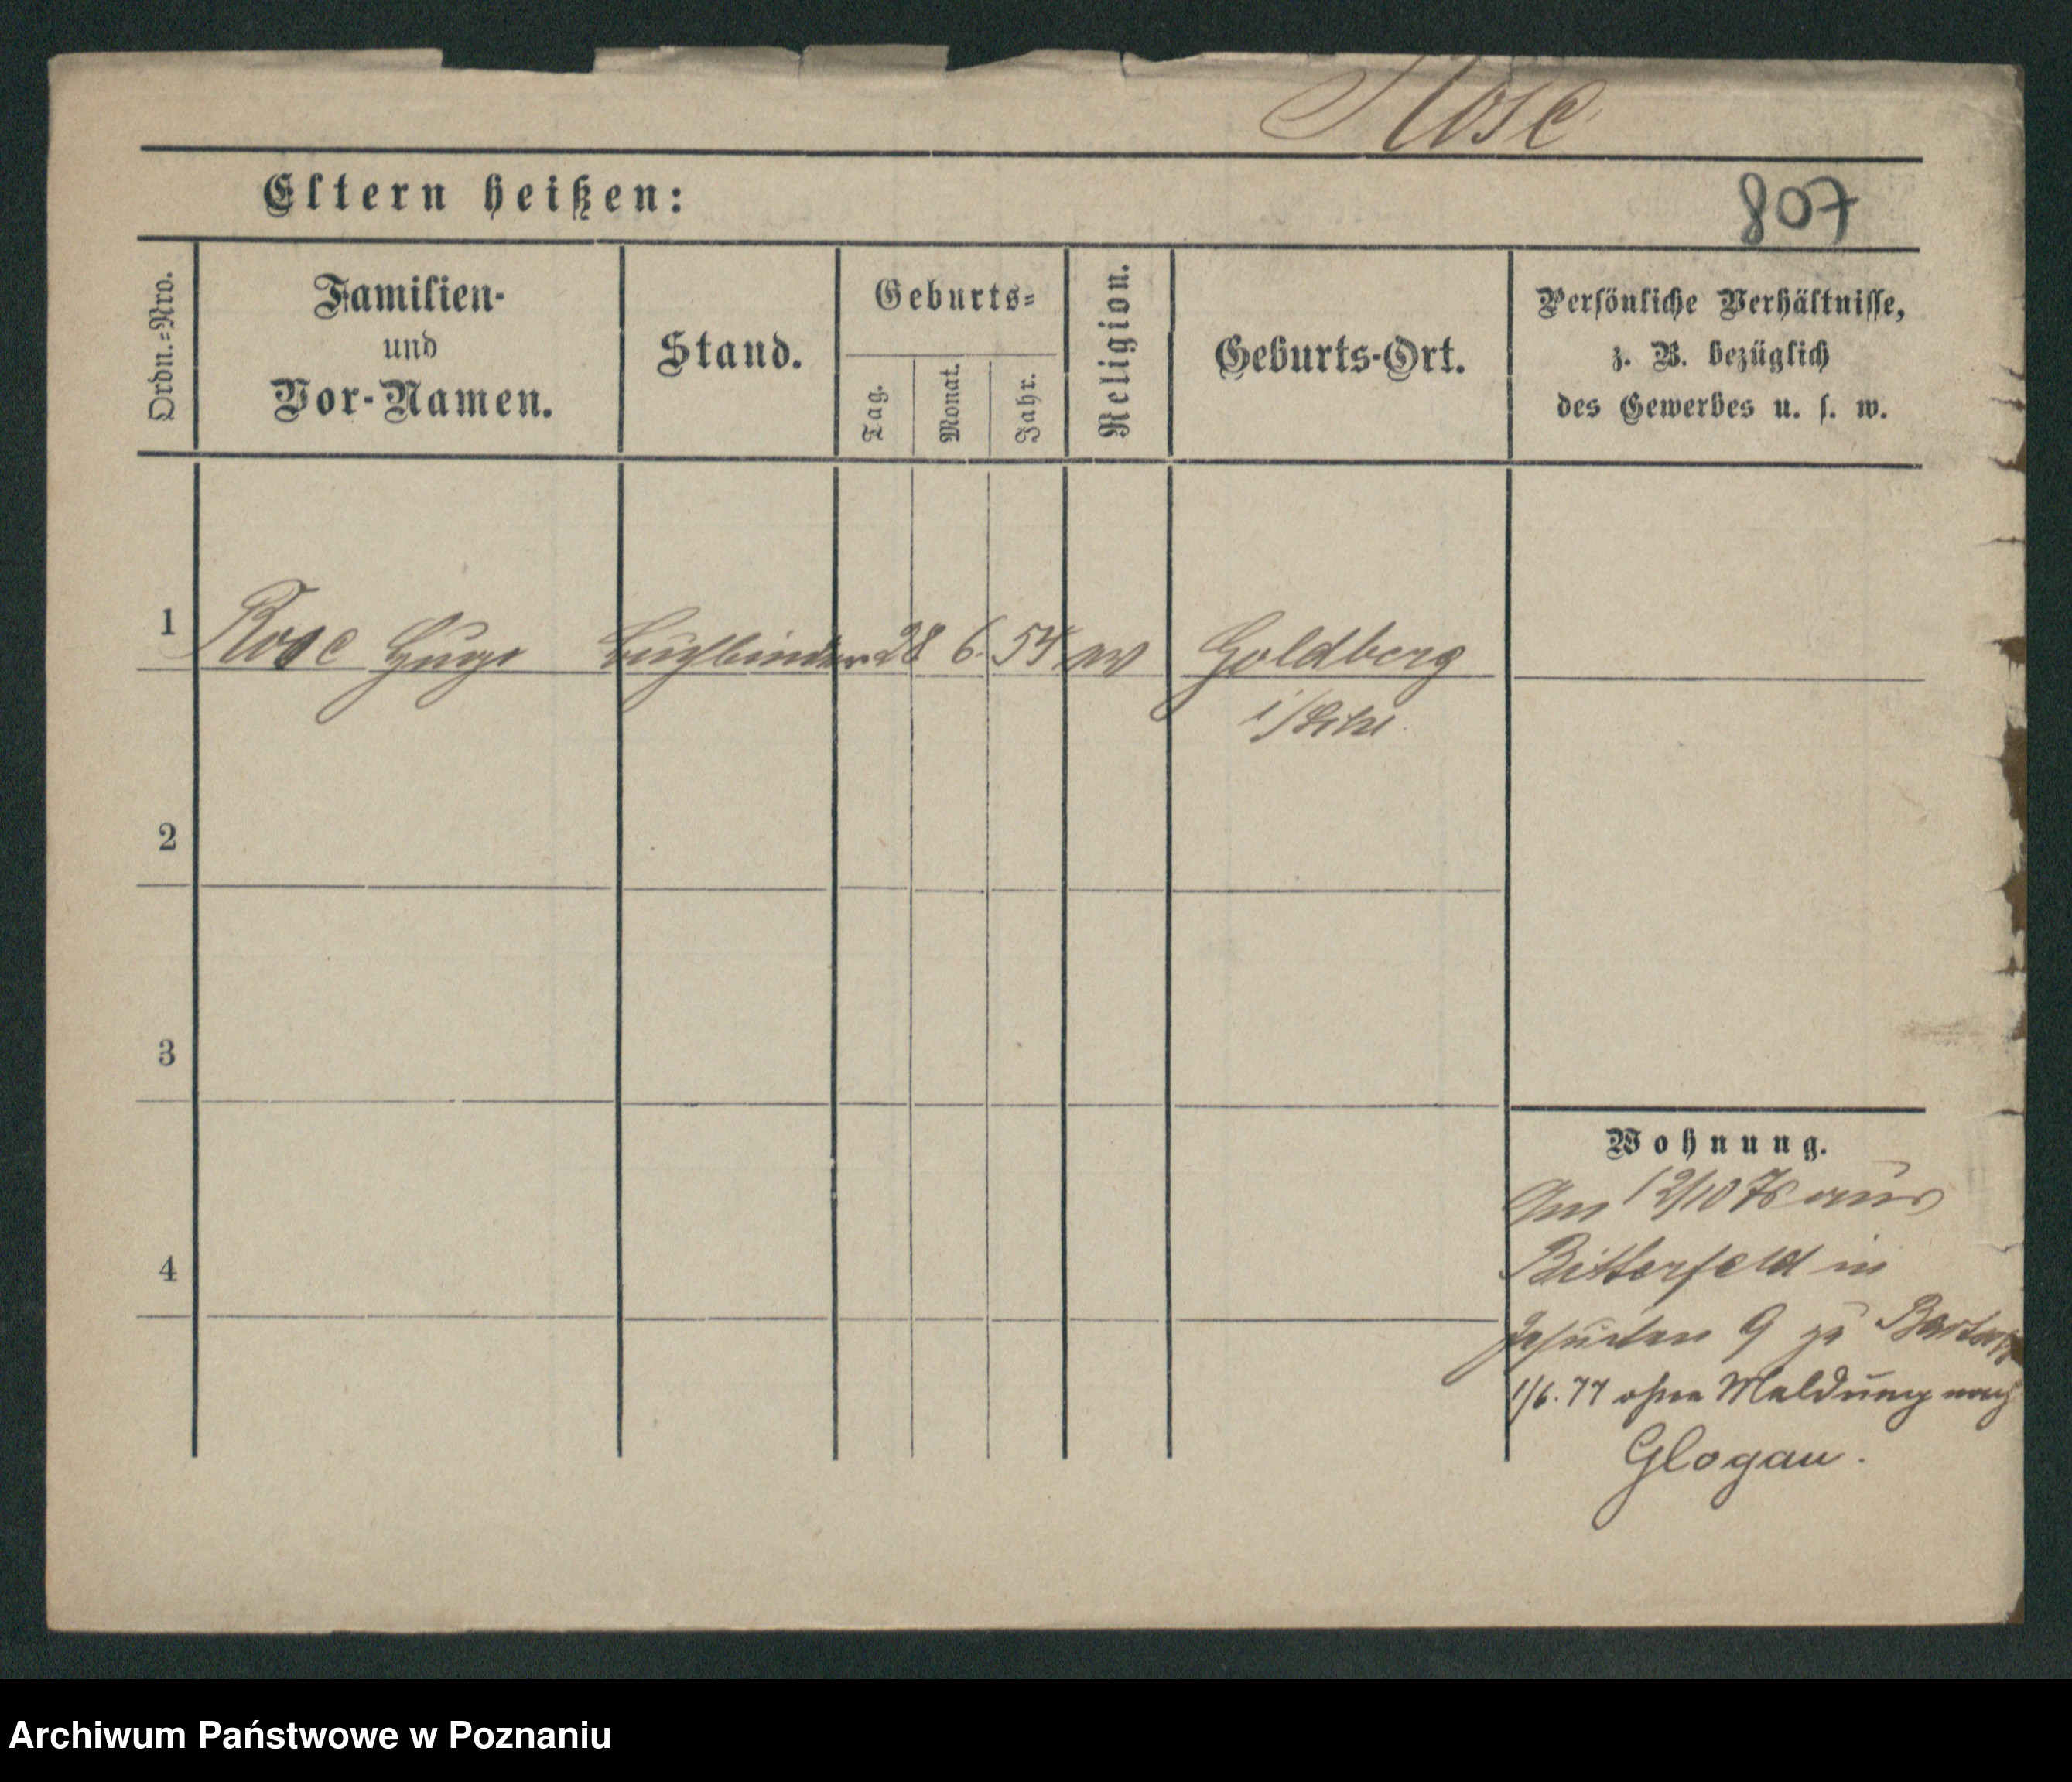 Rose
Eltern heißen:
807
Ordn.=Nro.
Familien-
und
Vor-Namen.
Stand.
Geburts=
Tag.
Monat.
Jahr.
Religion.
Geburts-Ort.
Persönliche Verhältnisse,
z. B. bezüglich
des Gewerbes u. s. w.
1 Rose Hugo Buchbinder 28 6. 54 ev Goldberg
i/Schl.
2
3
4
Wohnung.
Am 12/10 76 aus
Bitterfeld in
Jesuiten 9 zu
1/6. 77 ohne Meldung nach
Glogau.
Archiwum Państwowe w Poznaniu